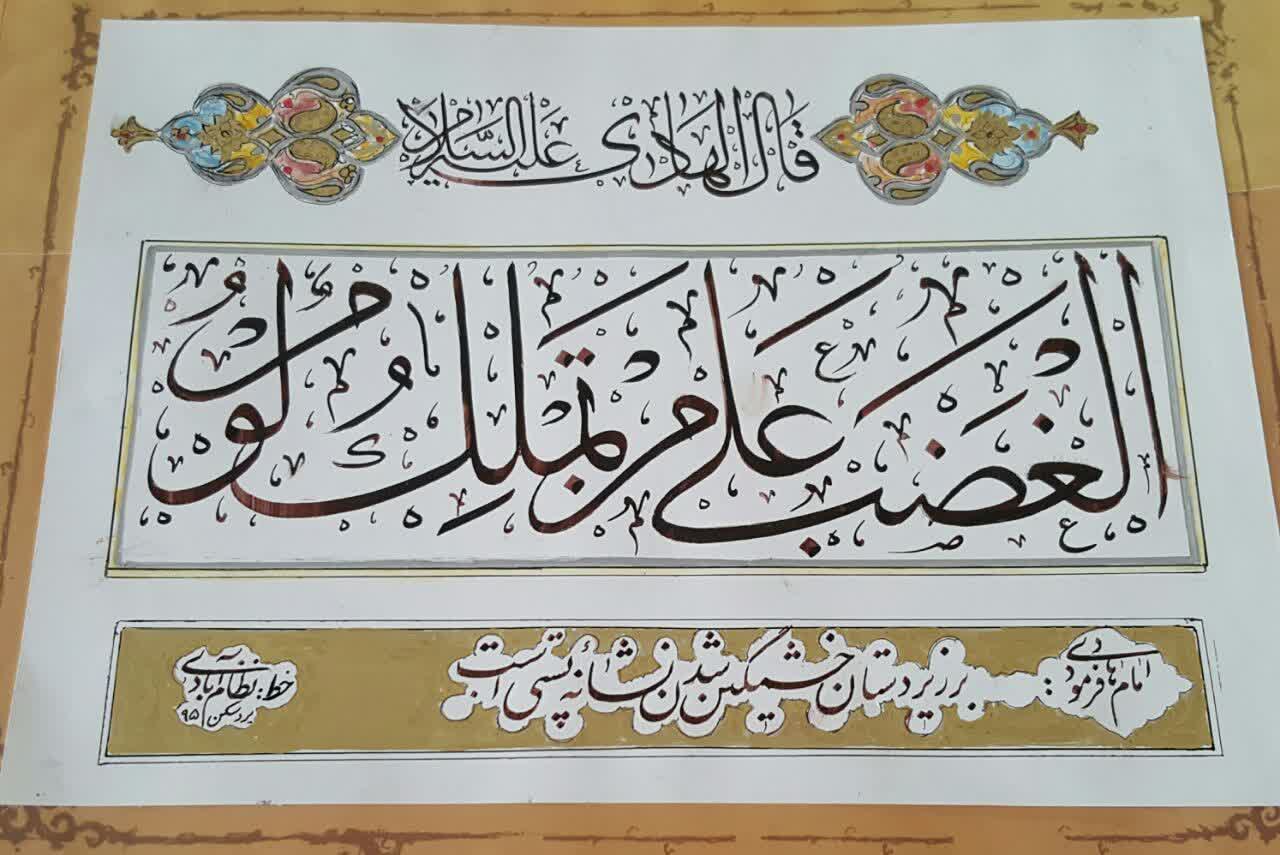 قال الهادی علیه السلام
الغضب علی من تملک لؤم
امام هادی فرمود: بر زیردستان خشمگین شدن نشانه پستی است
خط: نظام آبادی
بردسکن ۹۵